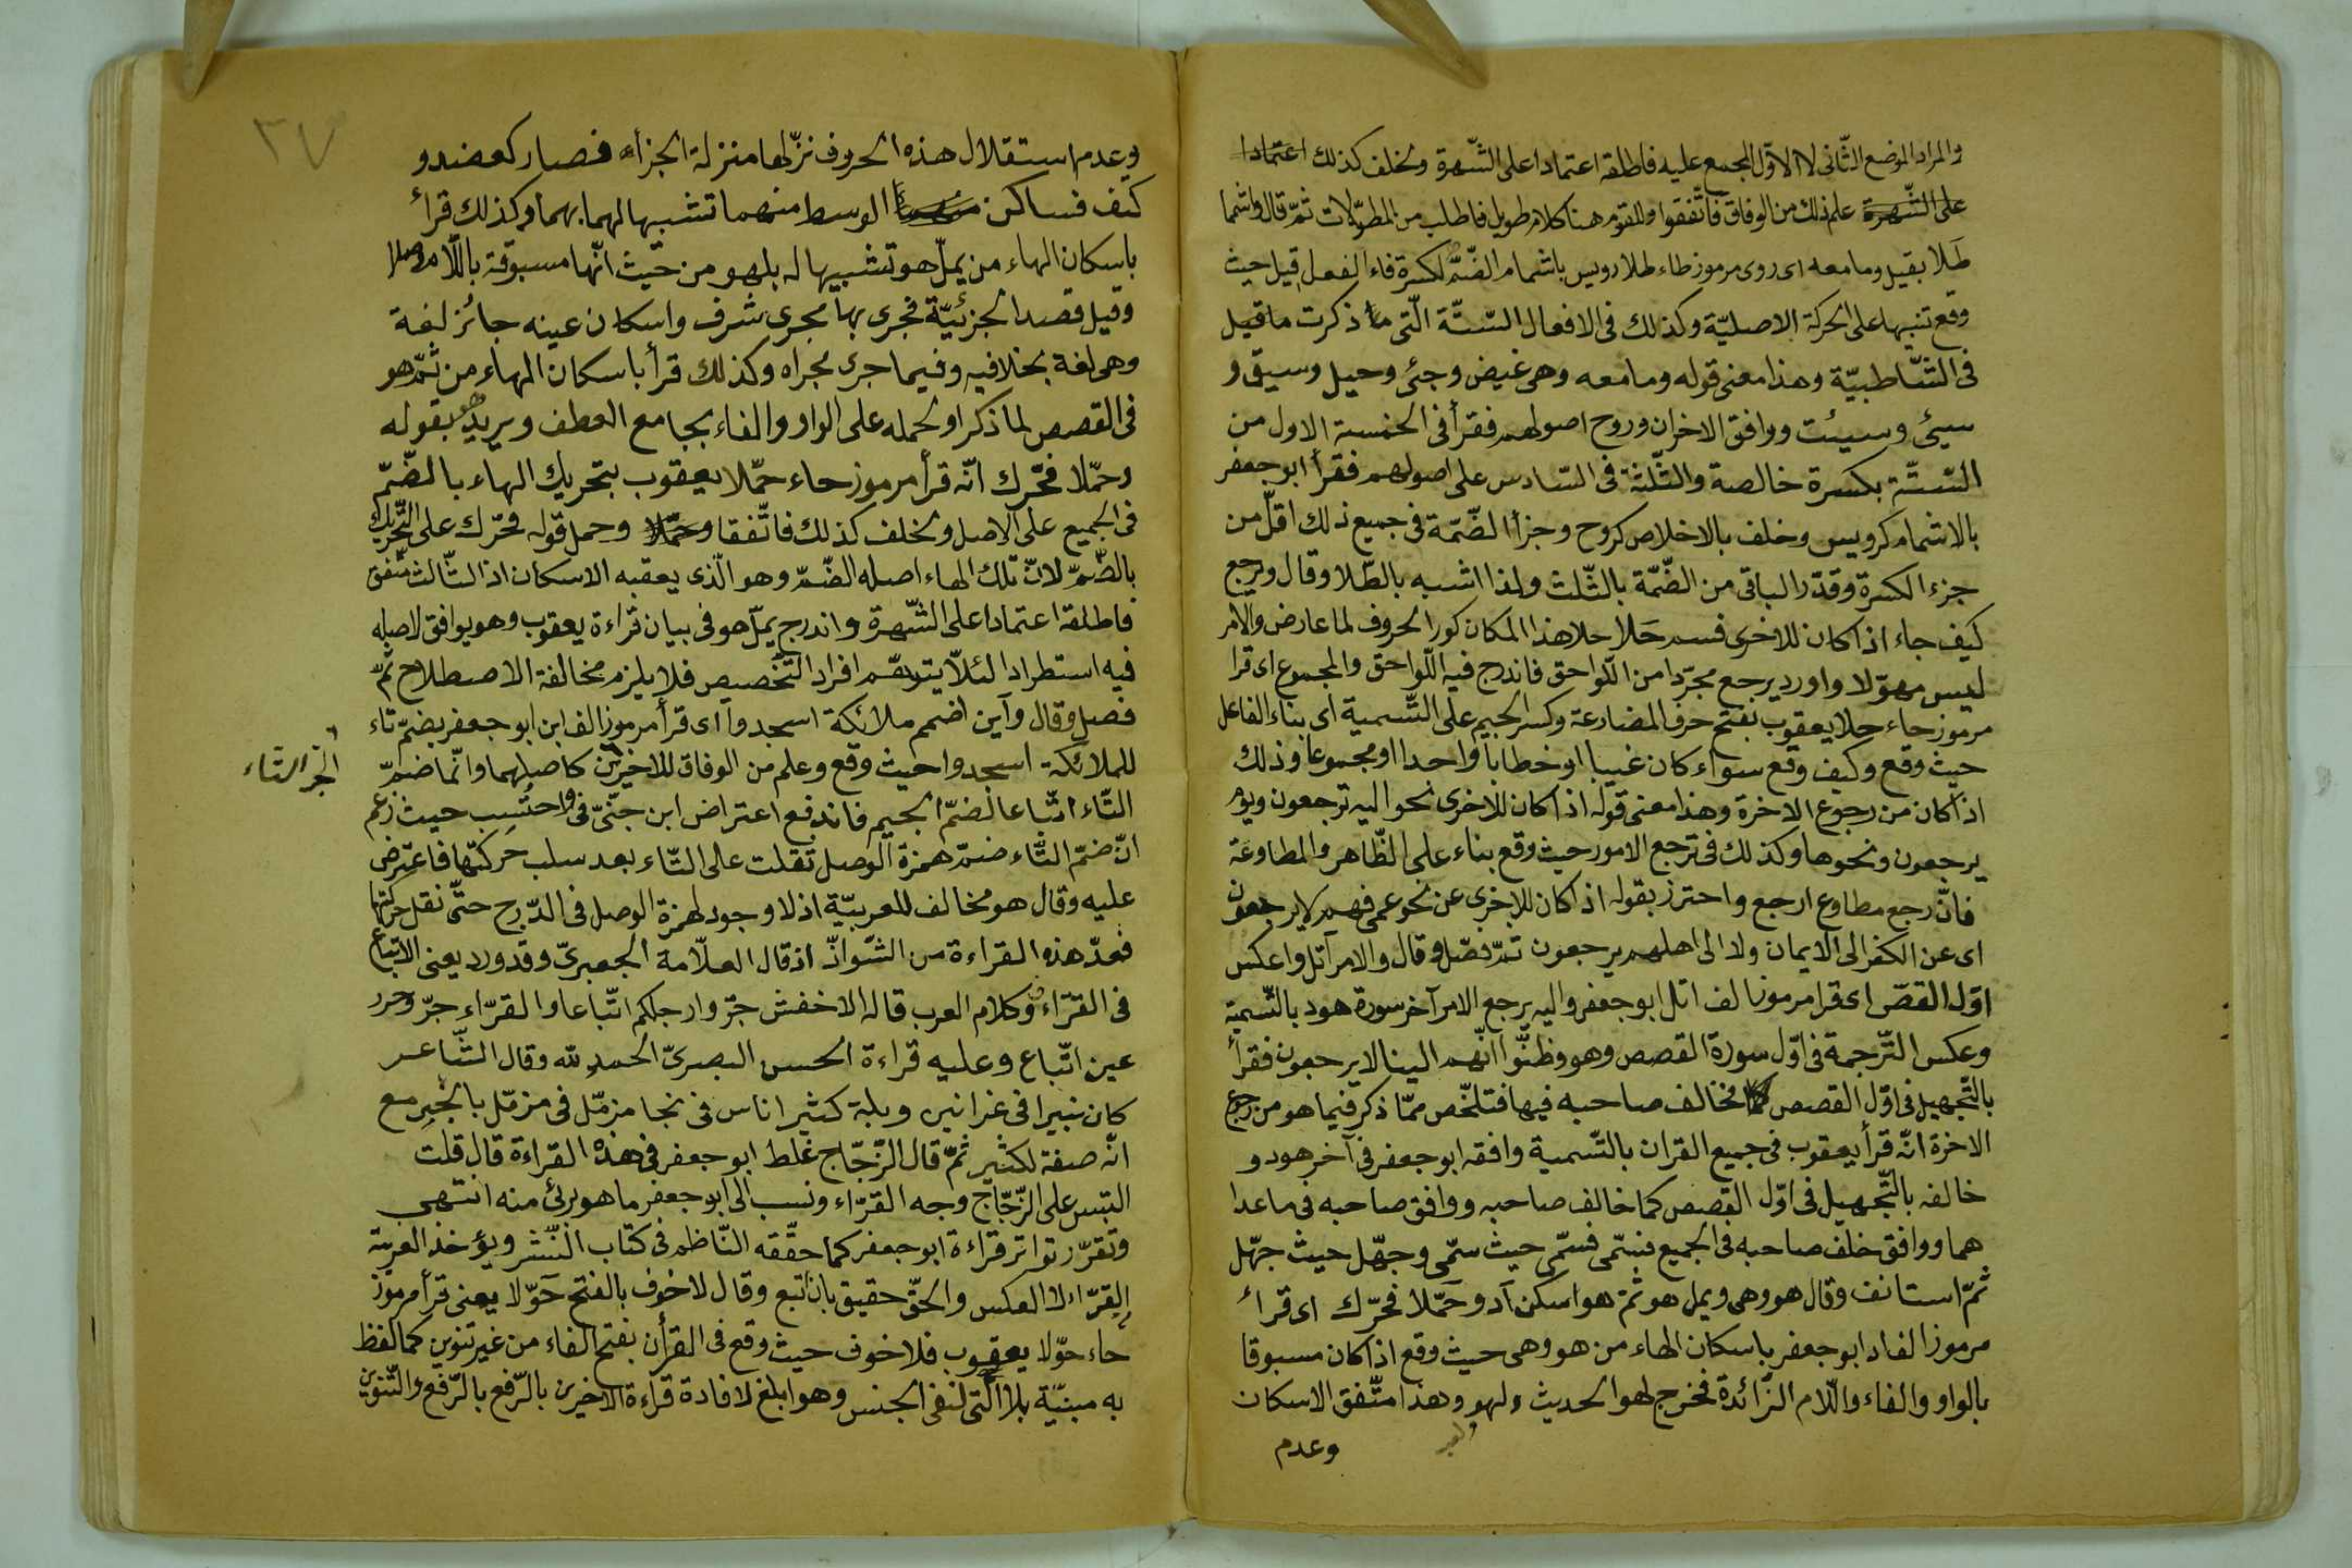 والمراد الموضع الثّانى لا الاوّل المجمع عليه فاطلقه اعتمادا على الشّهرة ولخلف كذلك اعتمادا
على الشّهرة علم ذلك من الوفاق فاتّفقوا وللقوم هنا كلام طويل فاطلب من المطوّلات ثمّ قال واشما
طَلا بقيل وما معه اى روى مرموز طاء طلا رويس باشمام الضّمّ لكسرة فاء الفعل قيل حيث
وقع تنبيها على الحركة الاصليّة وكذلك فى الافعال السّتّة الّتى ذكرت ما قيل
فى الشّاطبيّة وهذا معنى قوله وما معه وهى غيض وجئ وحيل وسيق و
سيئ وسيئت ووافق الاخران وروح اصولهم فقرأ فى الخمسة الاول من
السّتّة بكسرة خالصة والثّلثة فى السّادس على اصولهم فقرأ ابو جعفر
بالاشمام كرويس وخلف بالاخلاص كروح وجزأ الضّمّة فى جميع ذلك اقلّ من
جزء الكسرة وقدّر الباقى من الضّمّة بالثّلث ولذا اشبه بالطّلا وقال ويرجع
كيف جاء اذا كان للاخرى فسم حَلا حلا هذا المكان كور الحروف لما عارض والامر
ليس مهوّلا واورد يرجع مجرّدا من اللّواحق فاندرج فيه اللّواحق والمجموع اى قرا
مرموز حاء حلا يعقوب بفتح حرف المضارعة وكسر الجيم على التّسمية اى بناء الفاعل
حيث وقع وكيف وقع سواء كان غيبا او خطابا واحدا او مجموعا وذلك
اذا كان من رجوع الاخرة وهذا معنى قوله اذا كان للاخرى نحو اليه ترجعون ويوم
يرجعون ونحوها وكذلك فى ترجع الامور حيث وقع بناء على الظّاهر والمطاوعة
فانّ رجع مطاوع ارجع واحترز بقوله اذا كان للاخرى عن نحو عمى فهم لا يرجعون
اى عن الكفر الى الايمان ولا الى اهلهم يرجعون ثمّ فصّل وقال والامر آتل واعكس
اوّل القصّ اى قرا مرموز الف اتل ابو جعفر واليه يرجع الامر آخر سورة هود بالتّسمية
وعكس التّرجمة فى اوّل سورة القصص وهو وظنّوا انّهم الينا لا يرجعون فقرأ
بالتّجهيل فى اوّل القصص فخالف صاحبه فيها فتلخّص ممّا ذكر فيما هو من رجوع
الاخرة انّه قرأ يعقوب فى جميع القران بالتّسمية وافقه ابو جعفر فى آخر هود و
خالفه بالتّجهيل فى اوّل القصص كما خالف صاحبه ووافق صاحبه فى ما عدا
هما ووافق خلف صاحبه فى الجميع فسمّى حيث سمّى وجهّل حيث جهّل
ثمّ استانف وقال هو وهى ويمل هو ثمّ هو اسكن آد وحَمّلا فحرّك اى قرأ
مرموز الف اد ابو جعفر باسكان الهاء من هو وهى حيث وقع اذا كان مسبوقا
بالواو والفاء واللّام الزّائدة فخرج لهو الحديث ولهو وهذا متّفق الاسكان
وعدم
٣٧
وعدم استقلال هذه الحروف نزّلها منزلة الجزاء فصار كعضد و
كتف فساكن الوسط منهما تشبيها لهما بهما وكذلك قرأ
باسكان الهاء من يملّ هو تشبيها له بلهو من حيث انّها مسبوقة باللّام وصلا
وقيل قصد الجزئيّة فجرى بها مجرى شرف واسكان عينه جائز لغة
وهى لغة بخلافيه وفيما جرى مجراه وكذلك قرأ باسكان الهاء من ثمّ هو
فى القصص لما ذكر او لحمله على الواو والفاء بجامع العطف ويريد بقوله
وحمّلا فحّرك انّه قرأ مرموز حاء حمّلا يعقوب بتحريك الهاء بالضّمّ
فى الجميع على الاصل ولخلف كذلك فاتّفقا وحمل قوله فحّرك على التّحريك
بالضّمّ لانّ تلك الهاء اصله الضّمّ وهو الّذى يعقبه الاسكان اذ الثّالث متّفق
فاطلقه اعتمادا على الشّهرة واندرج يملّ هو فى بيان قراءة يعقوب وهو يوافق لاصله
فيه استطرادا لئلّا يتوهّم افراد التّخصيص فلا يلزم مخالفة الاصطلاح ثمّ
فصل وقال وآين اضمم ملائكة اسجدوا اى قرأ مرموز الف ابن ابو جعفر بضمّ تاء
للملائكة اسجدوا حيث وقع وعلم من الوفاق للاخرين كاصلهما وانّما ضمّ
التّاء اتّباعا لضمّ الجيم فاندفع اعتراض ابن جنّىّ فى واحتُسِب حيث زعم
انّ ضمّ التّاء ضمّ همزة الوصل نقلت على التّاء بعد سلب حركتها فاعترض
عليه وقال هو مخالف للعربيّة اذ لا وجود لهمزة الوصل فى الدّرج حتّى نقل حركتها
فعدّ هذه القراءة من الشّواذّ اذ قال العلّامة الجعبرىّ وقد ورد يعنى الاتباع
فى القرّاء وكلام العرب قاله الاخفش جرّ وارجلكم اتّباعا والقرّاء جرّ وحرر
عين اتّباع وعليه قراءة الحسن البصرىّ الحمد لله وقال الشّاعر
كان ثبيرا فى غرانين وبله كثير اناس فى نجا مزمّل فى مزمّل بالجرّ مع
انّه صفة لكثير ثمّ قال الزّجّاج غلط ابو جعفر فى هذه القراءة قال قلت
التبس على الزّجّاج وجه القرّاء ونسب الى ابو جعفر ما هو برئ منه انتهى
وتقرّر تواتر قراءة ابو جعفر كما حقّقه النّاظم فى كتاب النّشر ويؤخذ العربيّة
القرّاء لا العكس والحقّ حقيق بان تبع وقال لا خوف بالفتح حَوّلا يعنى قرأ مرموز
حاء حوّلا يعقوب فلا خوف حيث وقع فى القرأن بفتح الفاء من غير تنوين كما لفظ
به مبنيّة بلا الّتى لنفى الجنس وهو ابلغ لافادة قراءة الاخيرين بالرّفع بالرّفع والتّنوين